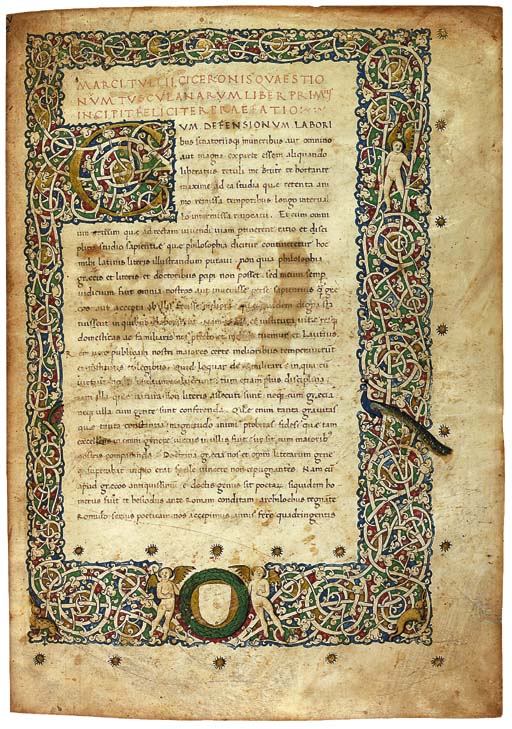 MARCI TULLII CICERONIS QVAESTIO
NVM TVSCVLANARVM LIBER PRIMVS
INCIPIT FELICITER PRAEFATIO
CUM DEFENSIONUM LABORI
bus senatoriisq; muneribus aut omnino
aut magna ex parte essem aliquando
liberatus retuli me brute te hortante
maxime ad ea studia que retenta ani
mo remissa temporibus longo interval
lo intermissa revocavi. Et cum omni
um artium que ad rectam vivendi viam pertinerent ratio et disci
plina studio sapientie que philosophia dicitur contineretur hoc
mihi latinis literis illustrandum putavi. non quia philosophia
grecis et literis et doctoribus percipi non posset. sed meum semp
iudicium fuit omnia nostros aut invenisse per se sapientius q̃ gre
cos aut accepta ab illis fecisse meliora que quidem digna sta
tuissent in quibus elaborarent. Nam et mores et instituta vite resq;
domesticas ac familiares nos profecto et melius tuemur et Lautius.
rem vero publicam nostri maiores certe melioribus temperaverunt
et institutis et legibus. quid loquar de re militari in qua cum
virtute nostri multum valuerunt tum etiam plus disciplina
nam illa que natura non literis assecuti sunt neq; cum grecia
neq; ulla cum gente sunt conferenda. Que enim tanta gravitas
que tanta constantia magnitudo animi probitas fides que tam
excellens in omni genere virtus in ullis fuit ut sit cum maiorib;
nostris comparanda. Doctrina grecia nos et omni literarum gene
re superabat in quo erat facile vincere non repugnantes. Nam cum
apud grecos antiquissimum e doctis genus sit poetarum siquidem ho
merus fuit et hesiodus ante Romam conditam archilochus regnante
Romulo serius poeticam nos accepimus annis fere quadringentis